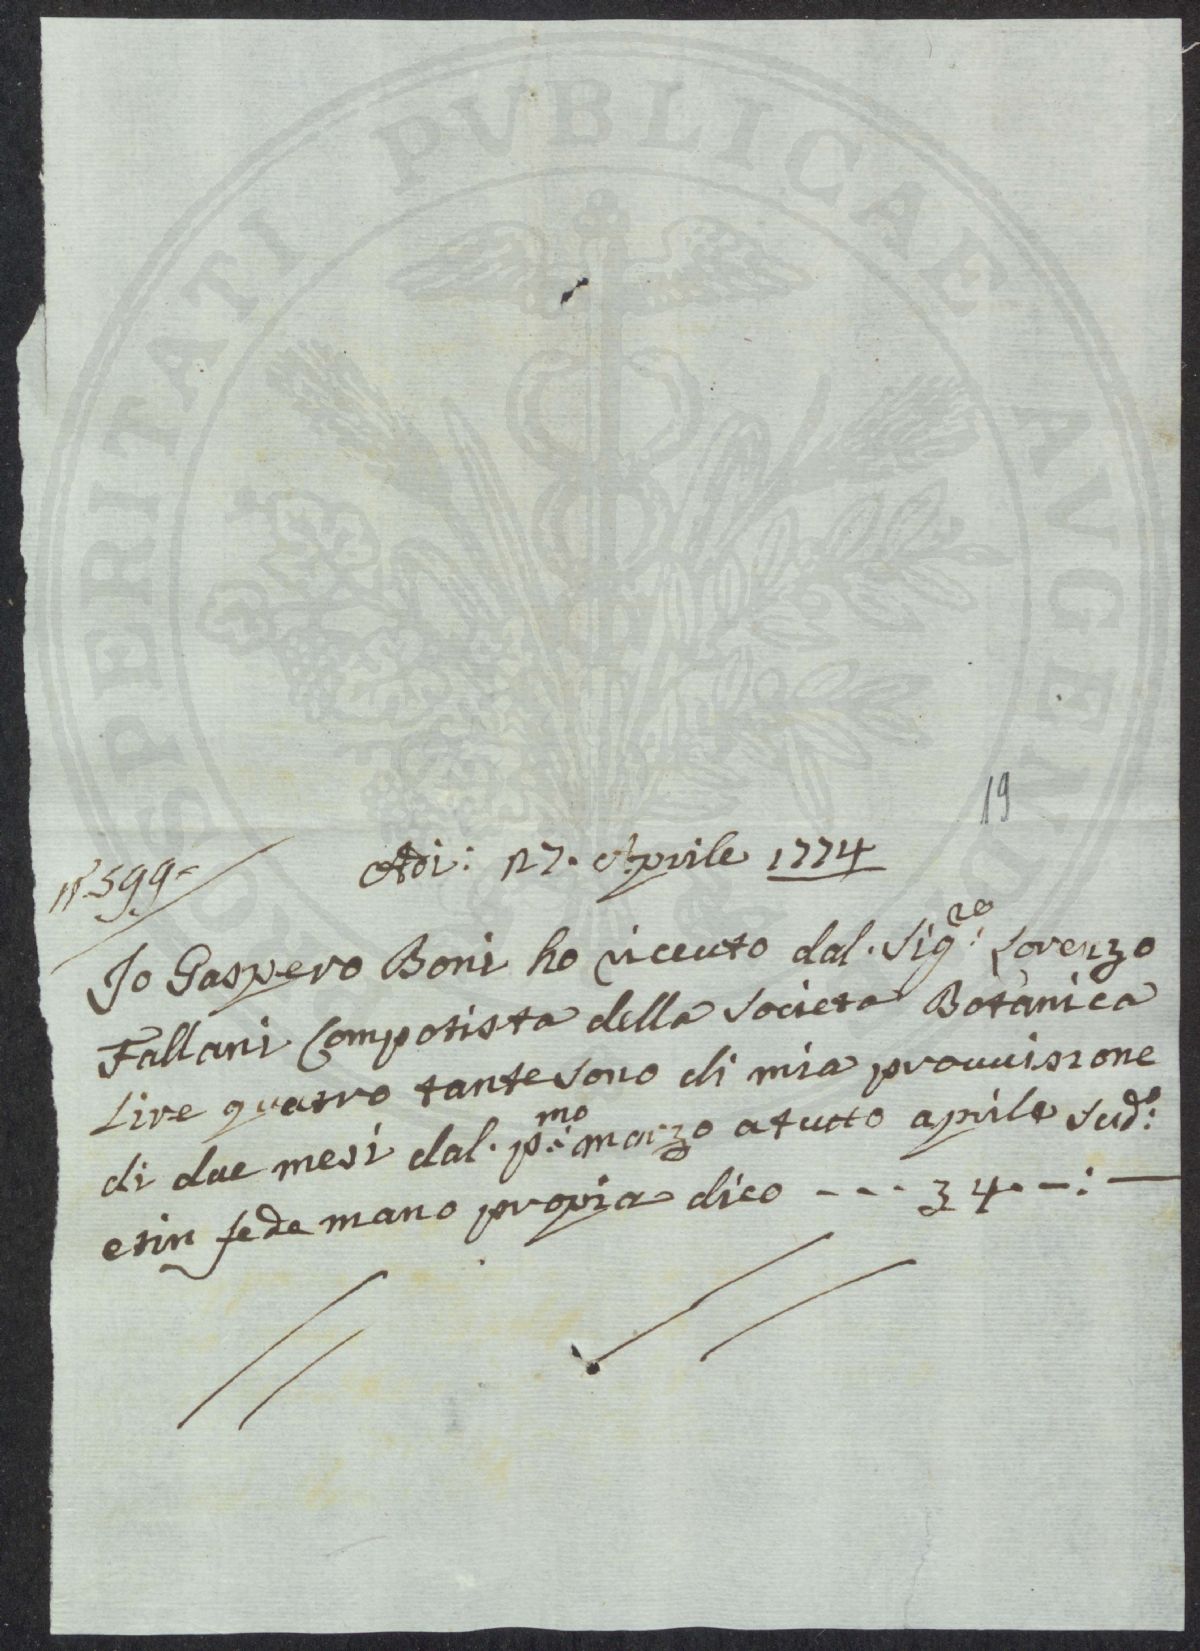 PROSPERITATI PUBLICAE AVGENDAE
19
N° 599=
Adì: 27. Aprile 1774
Io Gaspero Boni ho riceuto dal. Sig:re Lorenzo
Fallani Compotista della Societa Botanica
Lire quatro tante sono di mia prouuisione
di due mesi dal. p:mo marzo a tutto aprile Sud:o
e in fede mano propria dico --- £ 4. -:-